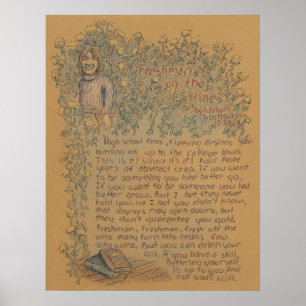 Freshman
on the
Vines
High school fires, flaming desires
burning on up to the college lawn
This is it! Where it's it! Four more
years of abstract crap. If you want
to be something you had better go,
If you want to be someone you had
better grow. But I bet they never
told you, and I bet you didn't know,
that degrees may open doors, but
they don't guarantee you gold,
Freshman, freshman, fresh off the
vine, many turn into raisins few
into wine, But you can drink your
fill, if you have a skill,
Bettering yourself
is up to you and
not luck's will